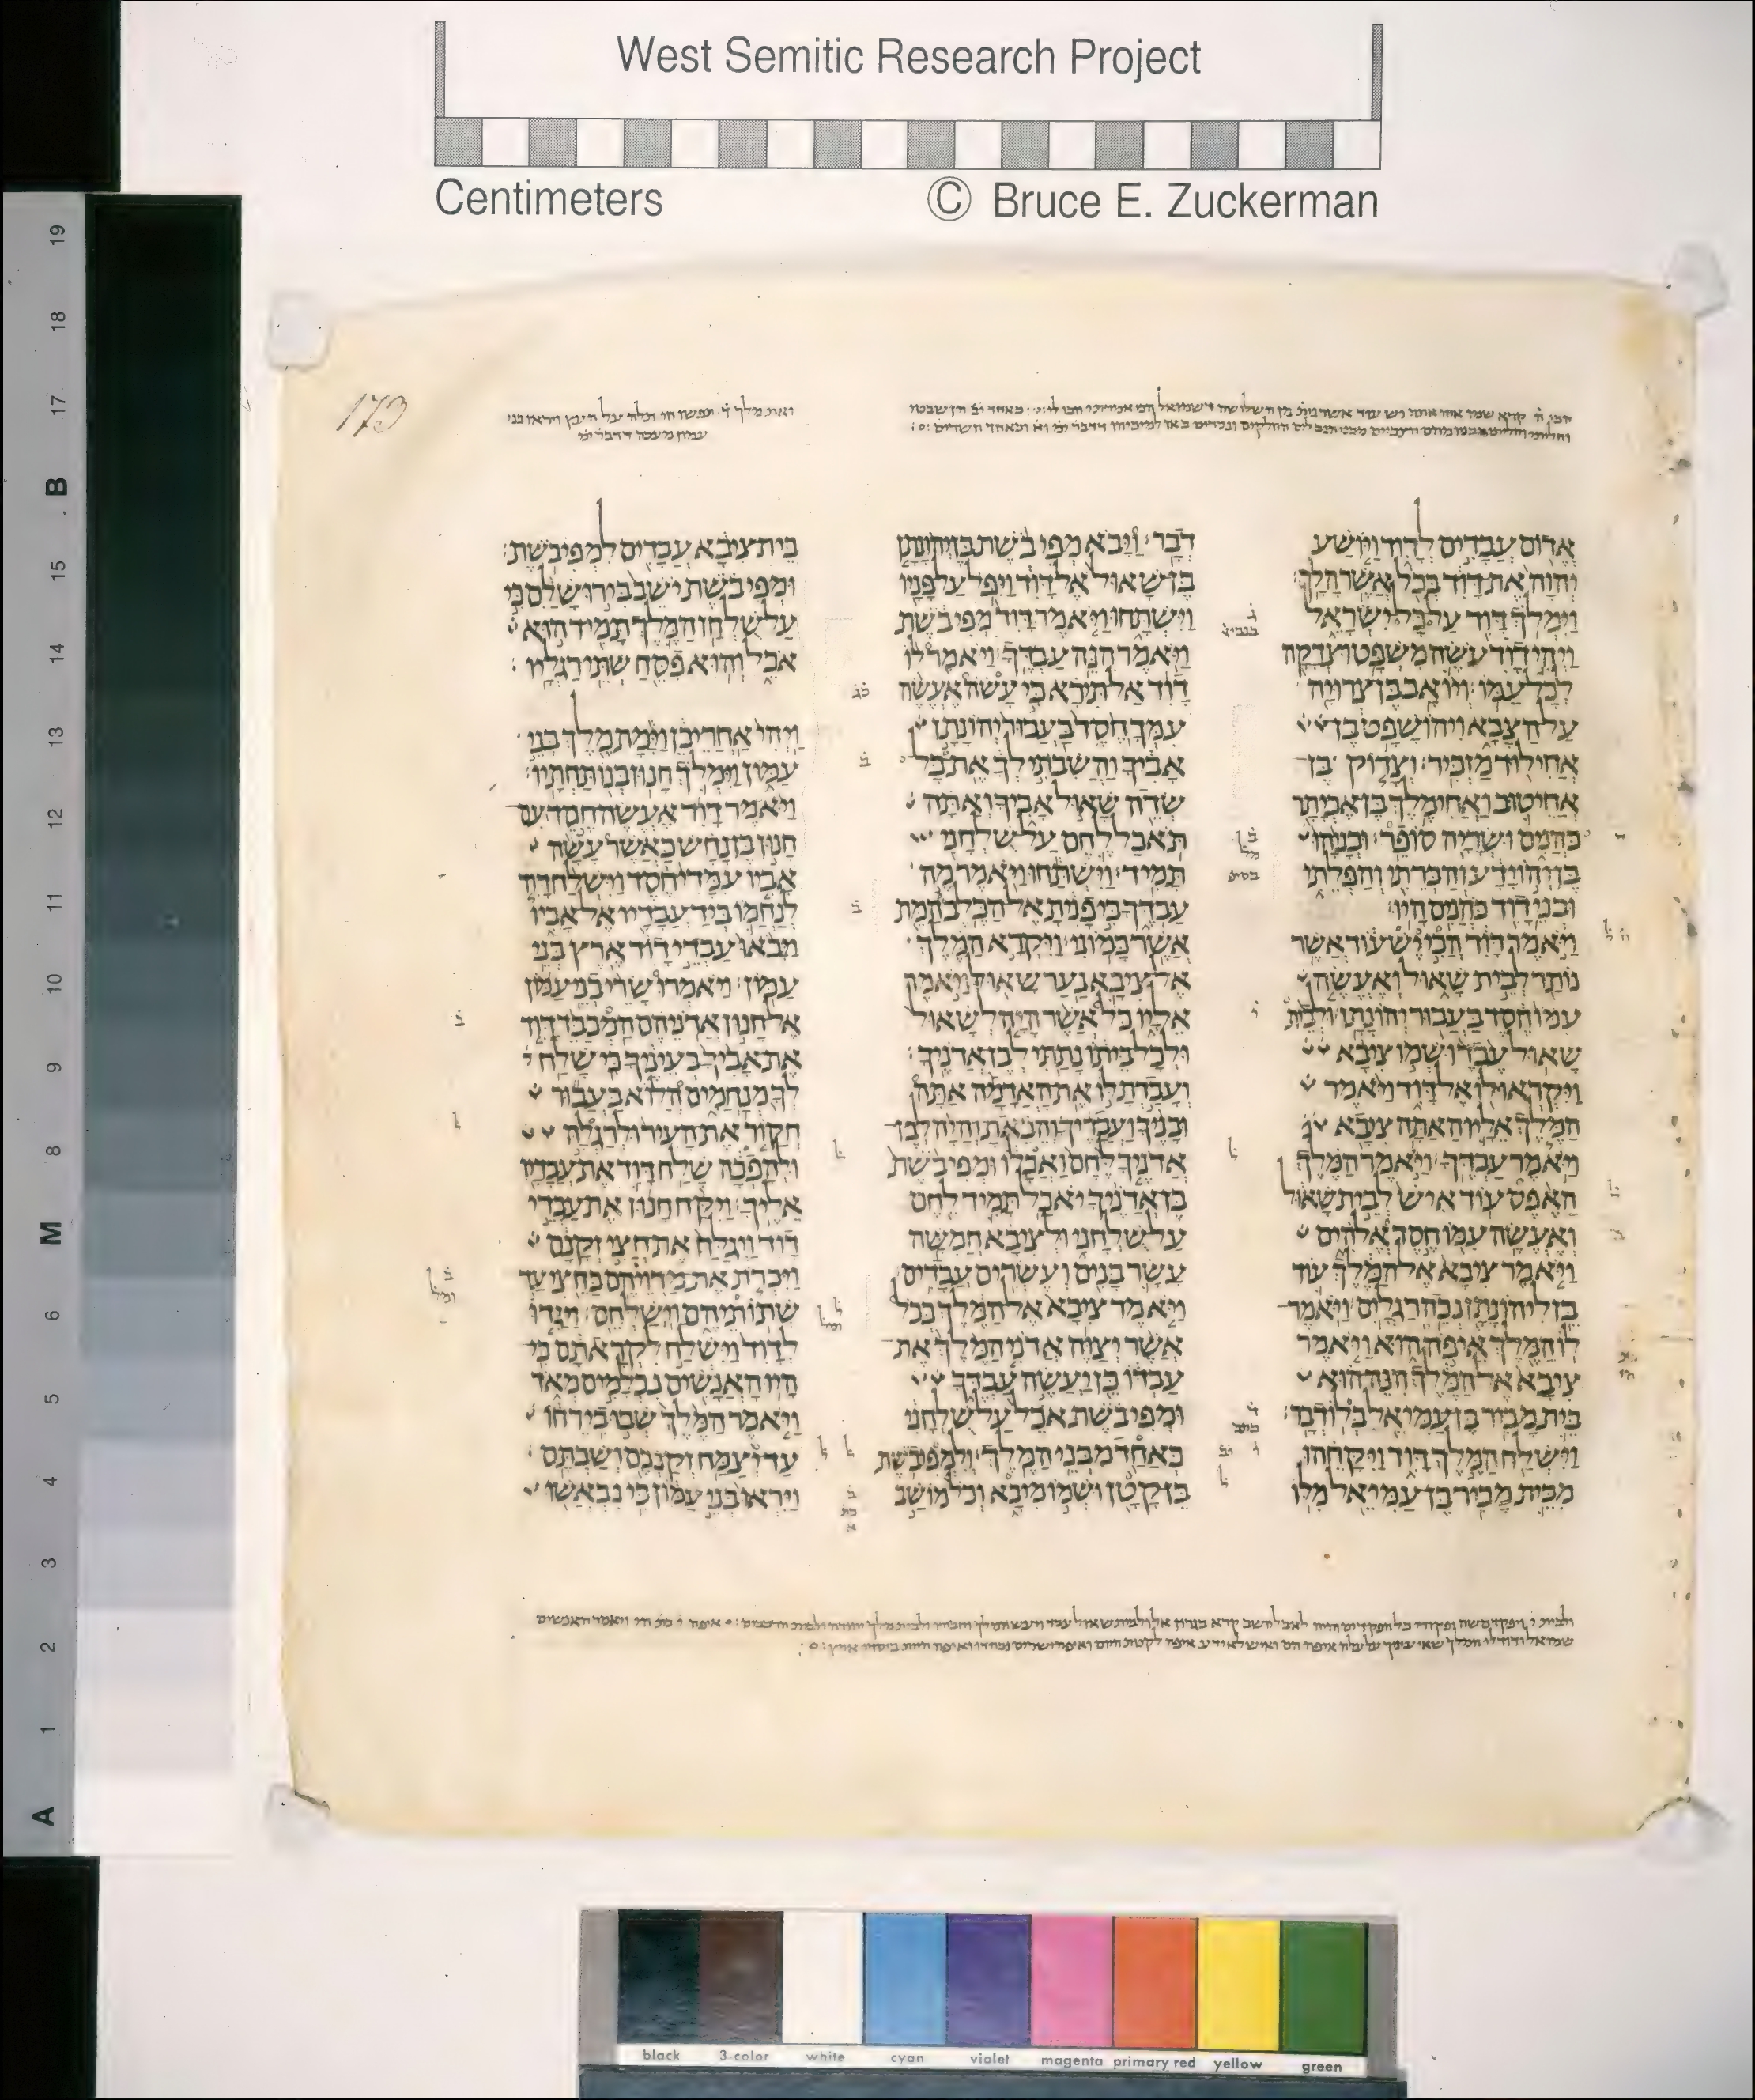 West Semitic Research Project
Centimeters
© Bruce E. Zuckerman
173
אדום עבדים לדוד ויושע
יהוה את דוד בכל אשר הלך׃
וימלך דוד על כל ישראל
ויהי דוד עשה משפט וצדקה
לכל עמו׃ ויואב בן צרויה
על הצבא ויהושפט בן
אחילוד מזכיר׃ וצדוק בן
אחיטוב ואחימלך בן אביתר
כהנים ושריה סופר׃ ובניהו
בן יהוידע והכרתי והפלתי
ובני דוד כהנים היו׃
ויאמר דוד הכי יש עוד אשר
נותר לבית שאול ואעשה
עמו חסד בעבור יהונתן׃ ולבית
שאול עבד ושמו ציבא
ויקראו לו אל דוד ויאמר
המלך אליו האתה ציבא
ויאמר עבדך׃ ויאמר המלך
האפס עוד איש לבית שאול
ואעשה עמו חסד אלהים
ויאמר ציבא אל המלך עוד
בן ליהונתן נכה רגלים׃ ויאמר
לו המלך איפה הוא ויאמר
ציבא אל המלך הנה הוא
בית מכיר בן עמיאל בלו דבר׃
וישלח המלך דוד ויקחהו
מבית מכיר בן עמיאל מלו
דבר׃ ויבא מפיבשת בן יהונתן
בן שאול אל דוד ויפל על פניו
וישתחו ויאמר דוד מפיבשת
ויאמר הנה עבדך׃ ויאמר לו
דוד אל תירא כי עשה אעשה
עמך חסד בעבור יהונתן
אביך והשבתי לך את כל
שדה שאול אביך ואתה
תאכל לחם על שלחני
תמיד׃ וישתחו ויאמר מה
עבדך כי פנית אל הכלב המת
אשר כמוני׃ ויקרא המלך
אל ציבא נער שאול ויאמר
אליו כל אשר היה לשאול
ולכל ביתו נתתי לבן אדניך׃
ועבדת לו את האדמה אתה
ובניך ועבדיך והבאת והיה לבן
אדניך לחם ואכלו ומפיבשת
בן אדניך יאכל תמיד לחם
על שלחני ולציבא חמשה
עשר בנים ועשרים עבדים׃
ויאמר ציבא אל המלך ככל
אשר יצוה אדני המלך את
עבדו כן יעשה עבדך
ומפיבשת אכל על שלחני
כאחד מבני המלך׃ ולמפיבשת
בן קטן ושמו מיכא וכל מושב
בית ציבא עבדים למפיבשת׃
ומפיבשת ישב בירושלם כי
על שלחן המלך תמיד הוא
אכל והוא פסח שתי רגליו׃
ויהי אחרי כן וימת מלך בני
עמון וימלך חנון בנו תחתיו׃
ויאמר דוד אעשה חסד עם
חנון בן נחש כאשר עשה
אביו עמדי חסד וישלח דוד
לנחמו ביד עבדיו אל אביו
ויבאו עבדי דוד ארץ בני
עמון׃ ויאמרו שרי בני עמון
אל חנון אדניהם המכבד דוד
את אביך בעיניך כי שלח
לך מנחמים הלוא בעבור
חקור את העיר ולרגלה
ולהפכה שלח דוד את עבדיו
אליך׃ ויקח חנון את עבדי
דוד ויגלח את חצי זקנם
ויכרת את מדויהם בחצי עד
שתותיהם וישלחם׃ ויגדו
לדוד וישלח לקראתם כי
היו האנשים נכלמים מאד
ויאמר המלך שבו בירחו
עד יצמח זקנכם ושבתם׃
ויראו בני עמון כי נבאשו
19
18
17
B
16
15
14
13
12
11
10
9
8
M
6
5
4
3
2
1
A
black 3-color white cyan violet magenta primary red yellow green